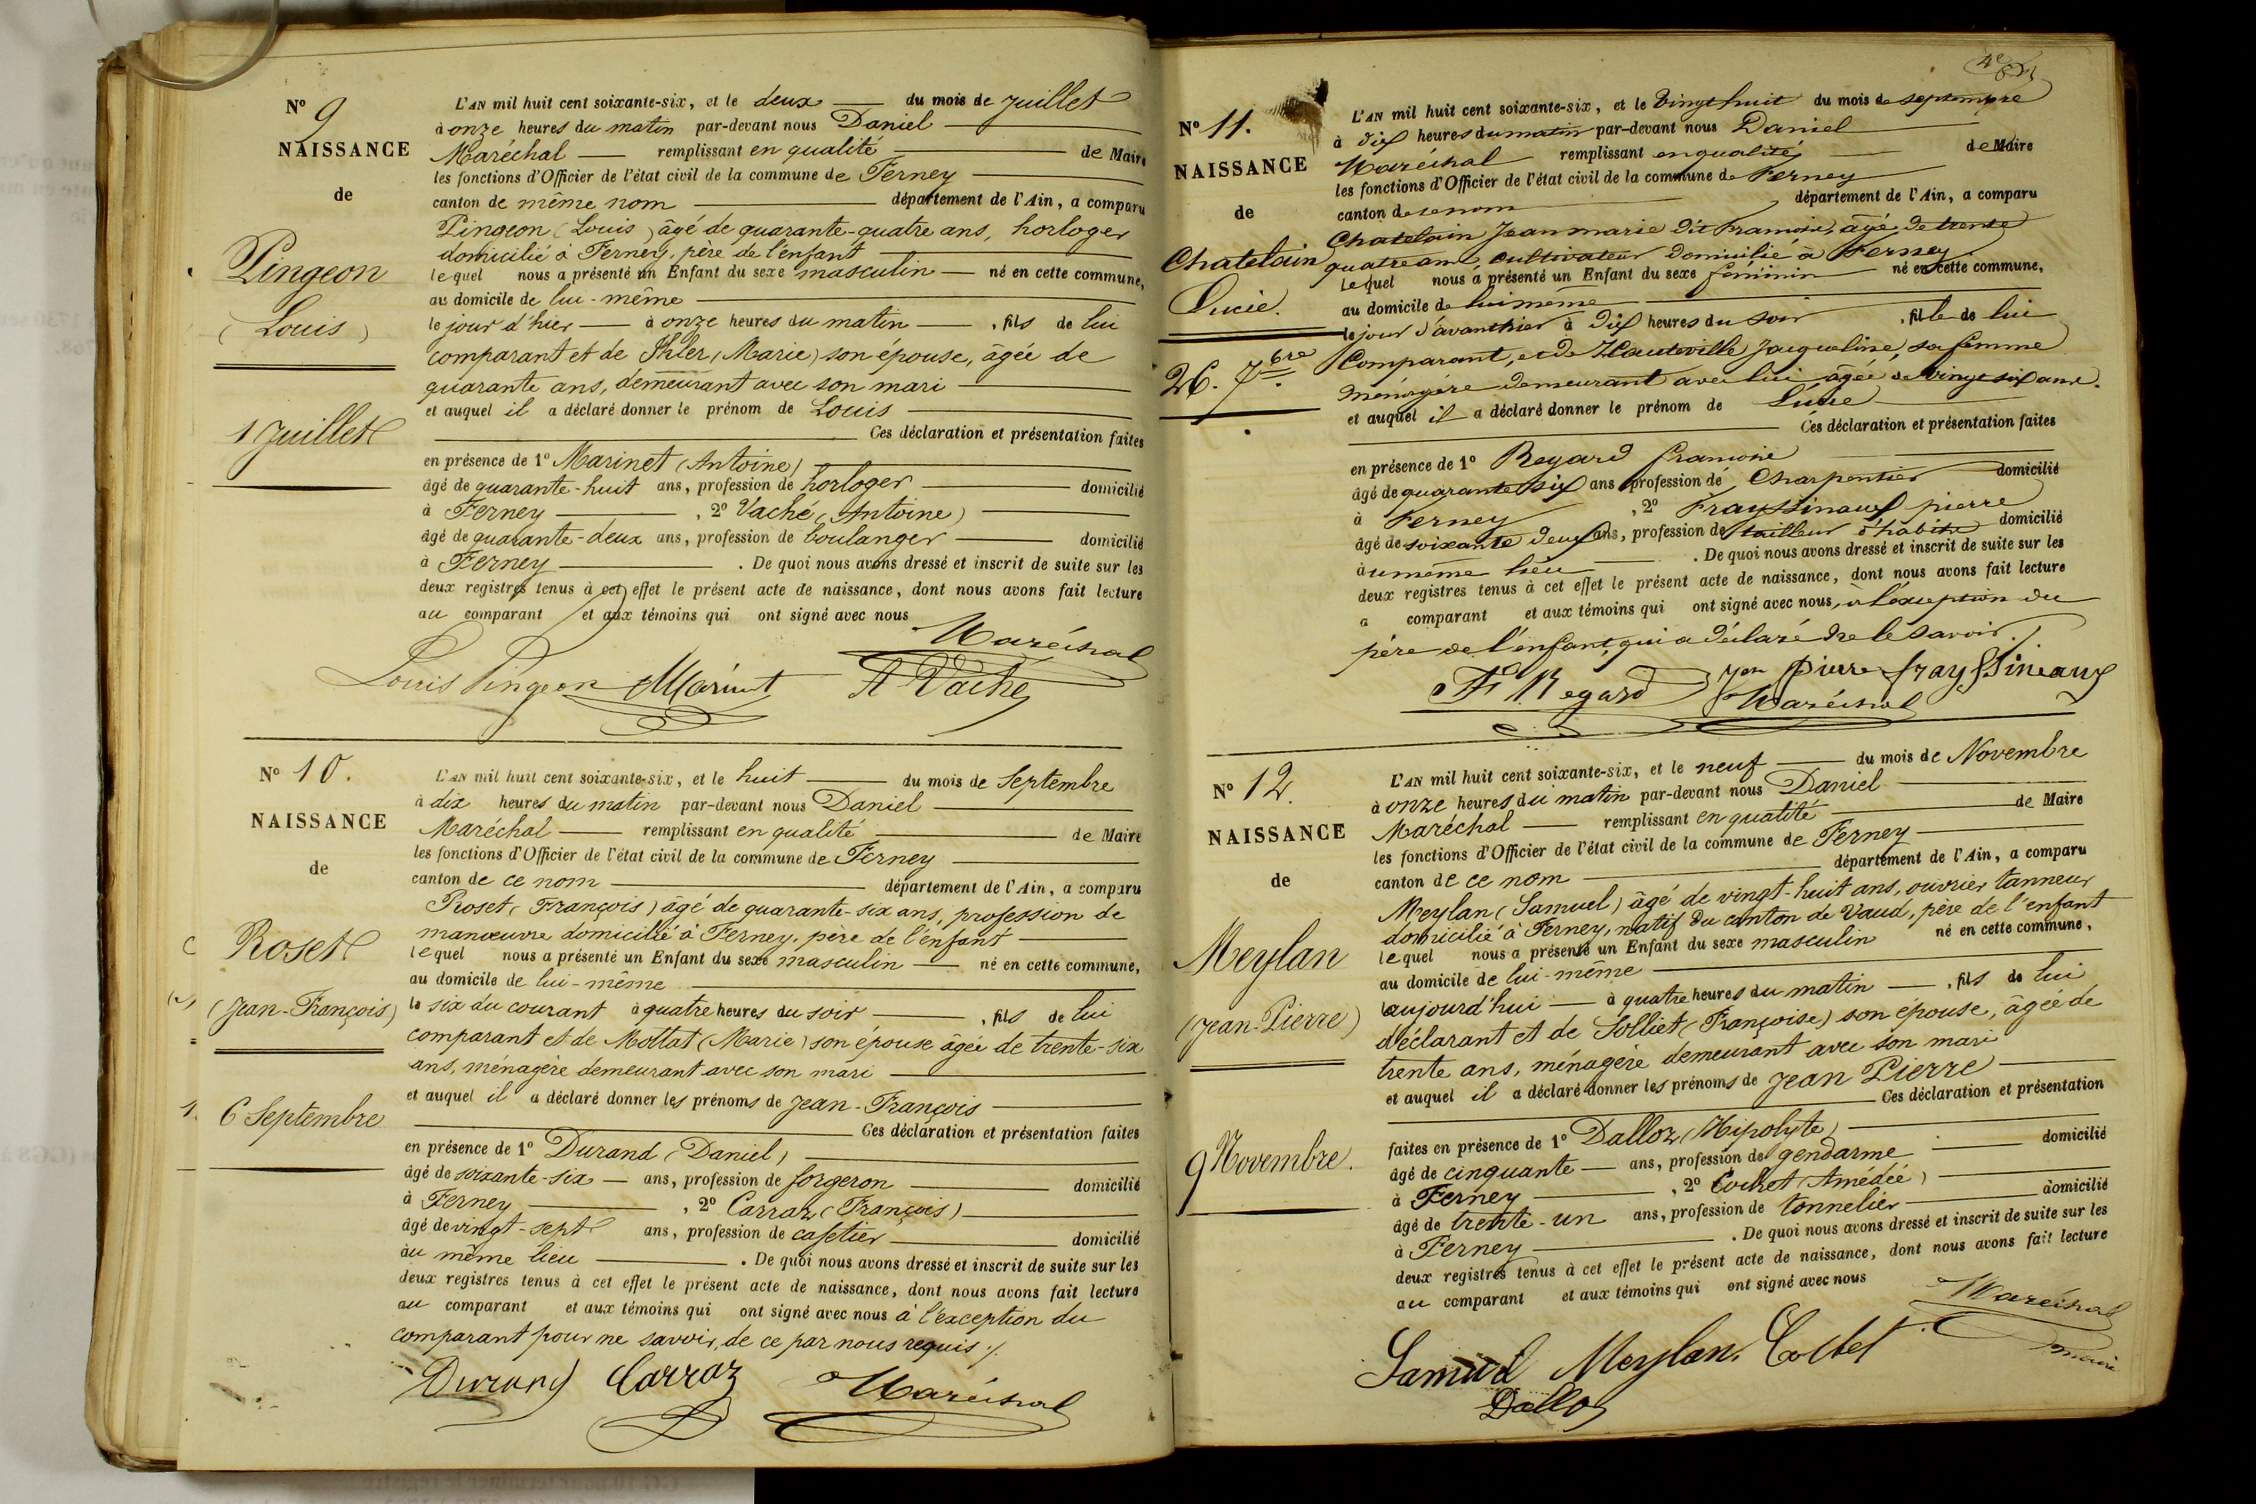 N° 9
NAISSANCE
de
Pingeon
(Louis)
1 Juillet
L'AN mil huit cent soixante-six, et le deux du mois de Juillet
à onze heures du matin par-devant nous Daniel
Maréchal remplissant en qualité de Maire
les fonctions d'Officier de l'état civil de la commune de Ferney
canton de même nom département de l'Ain, a comparu
Pingeon (Louis) âgé de quarante-quatre ans, horloger
domicilié à Ferney, père de l'enfant
lequel nous a présenté un Enfant du sexe masculin né en cette commune,
au domicile de lui-même
le jour d'hier à onze heures du matin, fils de lui
comparant et de Ihler (Marie) son épouse, âgée de
quarante ans, demeurant avec son mari
et auquel il a déclaré donner le prénom de Louis
Ces déclaration et présentation faites
en présence de 1° Marinet (Antoine)
âgé de quarante-huit ans, profession de horloger domicilié
à Ferney, 2° Vaché (Antoine)
âgé de quarante-deux ans, profession de boulanger domicilié
à Ferney. De quoi nous avons dressé et inscrit de suite sur les
deux registres tenus à cet effet le présent acte de naissance, dont nous avons fait lecture
au comparant et aux témoins qui ont signé avec nous
Maréchal
Louis Pingeon Marinet A Vaché
N° 10.
NAISSANCE
de
Roset
(Jean-François)
6 Septembre
L'AN mil huit cent soixante-six, et le huit du mois de Septembre
à dix heures du matin par-devant nous Daniel
Maréchal remplissant en qualité de Maire
les fonctions d'Officier de l'état civil de la commune de Ferney
canton de ce nom département de l'Ain, a comparu
Roset (François) âgé de quarante-six ans, profession de
manœuvre domicilié à Ferney, père de l'enfant
lequel nous a présenté un Enfant du sexe masculin né en cette commune,
au domicile de lui-même
le six du courant à quatre heures du soir, fils de lui
comparant et de Mottat (Marie) son épouse âgée de trente-six
ans, ménagère demeurant avec son mari
et auquel il a déclaré donner les prénoms de Jean-François
Ces déclaration et présentation faites
en présence de 1° Durand (Daniel)
âgé de soixante-six ans, profession de forgeron domicilié
à Ferney, 2° Carraz (François)
âgé de vingt-sept ans, profession de cafetier domicilié
au même lieu. De quoi nous avons dressé et inscrit de suite sur les
deux registres tenus à cet effet le présent acte de naissance, dont nous avons fait lecture
au comparant et aux témoins qui ont signé avec nous à l'exception du
comparant pour ne savoir, de ce par nous requis ./.
Durand Carraz Maréchal
N° 11.
NAISSANCE
de
Chatelain
Lucie.
26. 7bre
L'AN mil huit cent soixante-six, et le Vingt huit du mois de septempre
à dix heures du matin par-devant nous Daniel
Maréchal remplissant en qualité de Maire
les fonctions d'Officier de l'état civil de la commune de Ferney
canton de ce nom département de l'Ain, a comparu
Chatelain Jean marie dit François, âgé de trente
quatre ans, cultivateur domicilié à Ferney
lequel nous a présenté un Enfant du sexe féminin né en cette commune,
au domicile de lui même
le jour d'avanthier à dix heures du soir, fille de lui
Comparant, et de Hauteville Jacqueline, sa femme
ménagère demeurant avec lui âgée de vingt six ans.
et auquel il a déclaré donner le prénom de Lucie
Ces déclaration et présentation faites
en présence de 1° Regard François
âgé de quarante six ans profession de Charpentier domicilié
à Ferney, 2° Frayssinaux pierre
âgé de soixante deux ans, profession de tailleur d'habits domicilié
au même lieu. De quoi nous avons dressé et inscrit de suite sur les
deux registres tenus à cet effet le présent acte de naissance, dont nous avons fait lecture
a comparant et aux témoins qui ont signé avec nous, à l'exception du
père de l'enfant, qui a déclaré ne le savoir./
F. Regard Jean Pierre frayssineaux
Maréchal
N° 12.
NAISSANCE
de
Meylan
(Jean-Pierre)
9 Novembre.
L'AN mil huit cent soixante-six, et le neuf du mois de Novembre
à onze heures du matin par-devant nous Daniel
Maréchal remplissant en qualité de Maire
les fonctions d'Officier de l'état civil de la commune de Ferney
canton de ce nom département de l'Ain, a comparu
Meylan (Samuel) âgé de vingt-huit ans, ouvrier tanneur
domicilié à Ferney, natif du canton de Vaud, père de l'enfant
lequel nous a présenté un Enfant du sexe masculin né en cette commune,
au domicile de lui-même
aujourd'hui à quatre heures du matin, fils de lui
déclarant et de Solliet (Françoise) son épouse, âgée de
trente ans, ménagère demeurant avec son mari
et auquel il a déclaré donner les prénoms de Jean Pierre
Ces déclaration et présentation
faites en présence de 1° Dalloz (Hipolyte)
âgé de cinquante ans, profession de gendarme domicilié
à Ferney, 2° Cochet (Amédée)
âgé de trente-un ans, profession de tonnelier domicilié
à Ferney. De quoi nous avons dressé et inscrit de suite sur les
deux registres tenus à cet effet le présent acte de naissance, dont nous avons fait lecture
au comparant et aux témoins qui ont signé avec nous
Maréchal
maire
Samuel Meylan
Dalloz